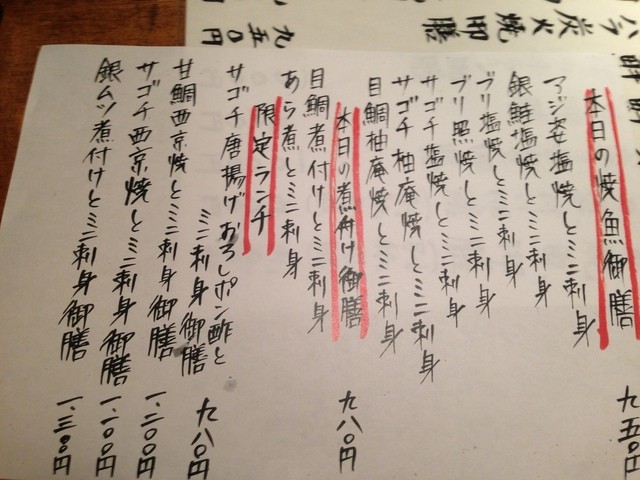 本日の焼魚御膳 九五〇円
アジ姿塩焼とミニ刺身
銀鮭塩焼とミニ刺身
ブリ塩焼とミニ刺身
ブリ照焼とミニ刺身
サゴチ塩焼とミニ刺身
サゴチ柚庵焼とミニ刺身
目鯛柚庵焼とミニ刺身
本日の煮付け御膳 九八〇円
目鯛煮付けとミニ刺身
あら煮とミニ刺身
限定ランチ
サゴチ唐揚げおろしポン酢と
ミニ刺身御膳 九八〇円
甘鯛西京焼とミニ刺身御膳 一、二〇〇円
サゴチ西京焼とミニ刺身御膳 一、一〇〇円
銀ムツ煮付けとミニ刺身御膳 一、三〇〇円
炭火
焼
膳
九五〇円